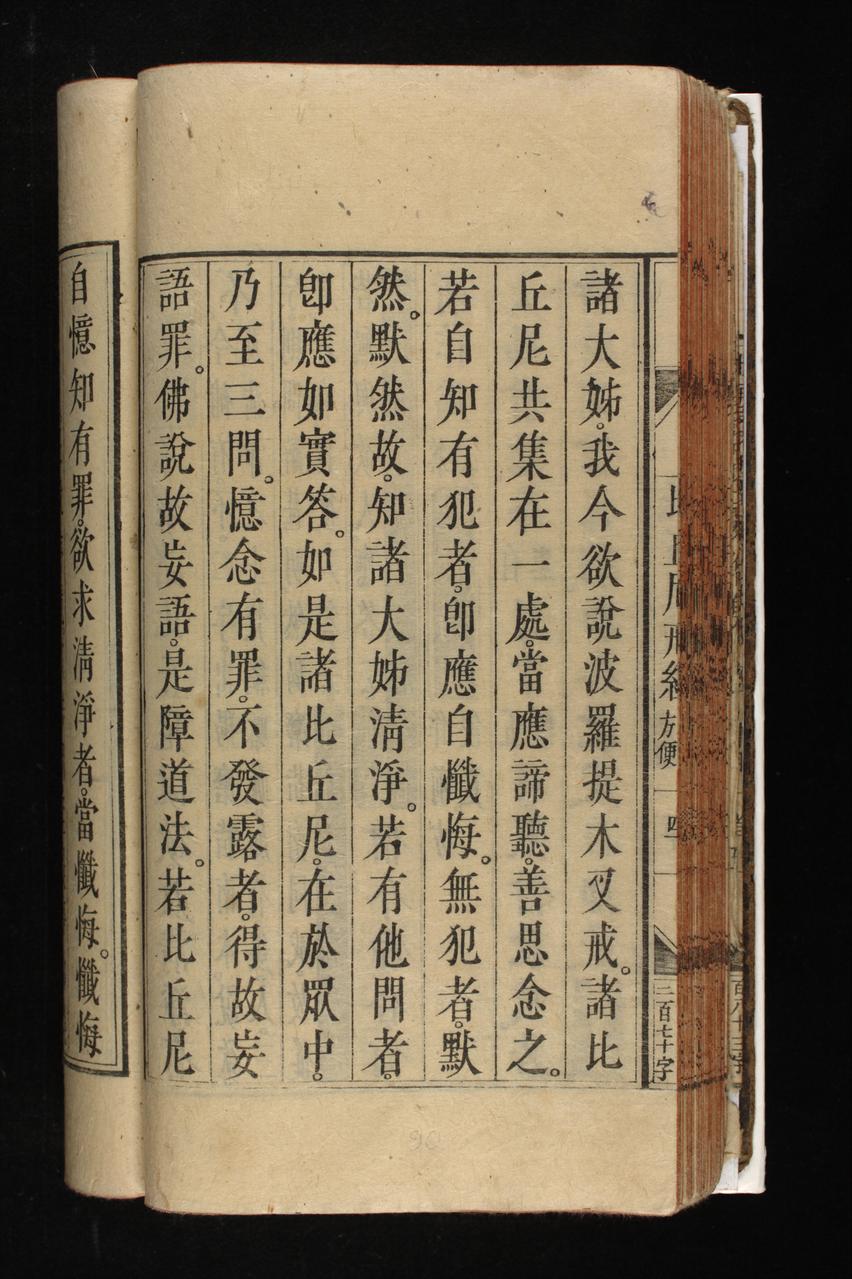 諸大姊。我今欲說波羅提木叉戒。諸比
丘尼共集在一處。當應諦聽。善思念之。
若自知有犯者。卽應自懺悔。無犯者。默
然。默然故。知諸大姊淸淨。若有他問者。
卽應如實答。如是諸比丘尼。在於眾中。
乃至三問。憶念有罪。不發露者。得故妄
語罪。佛說故妄語。是障道法。若比丘尼
自憶知有罪。欲求淸淨者。當懺悔。懺悔
方便
四
三百七十字